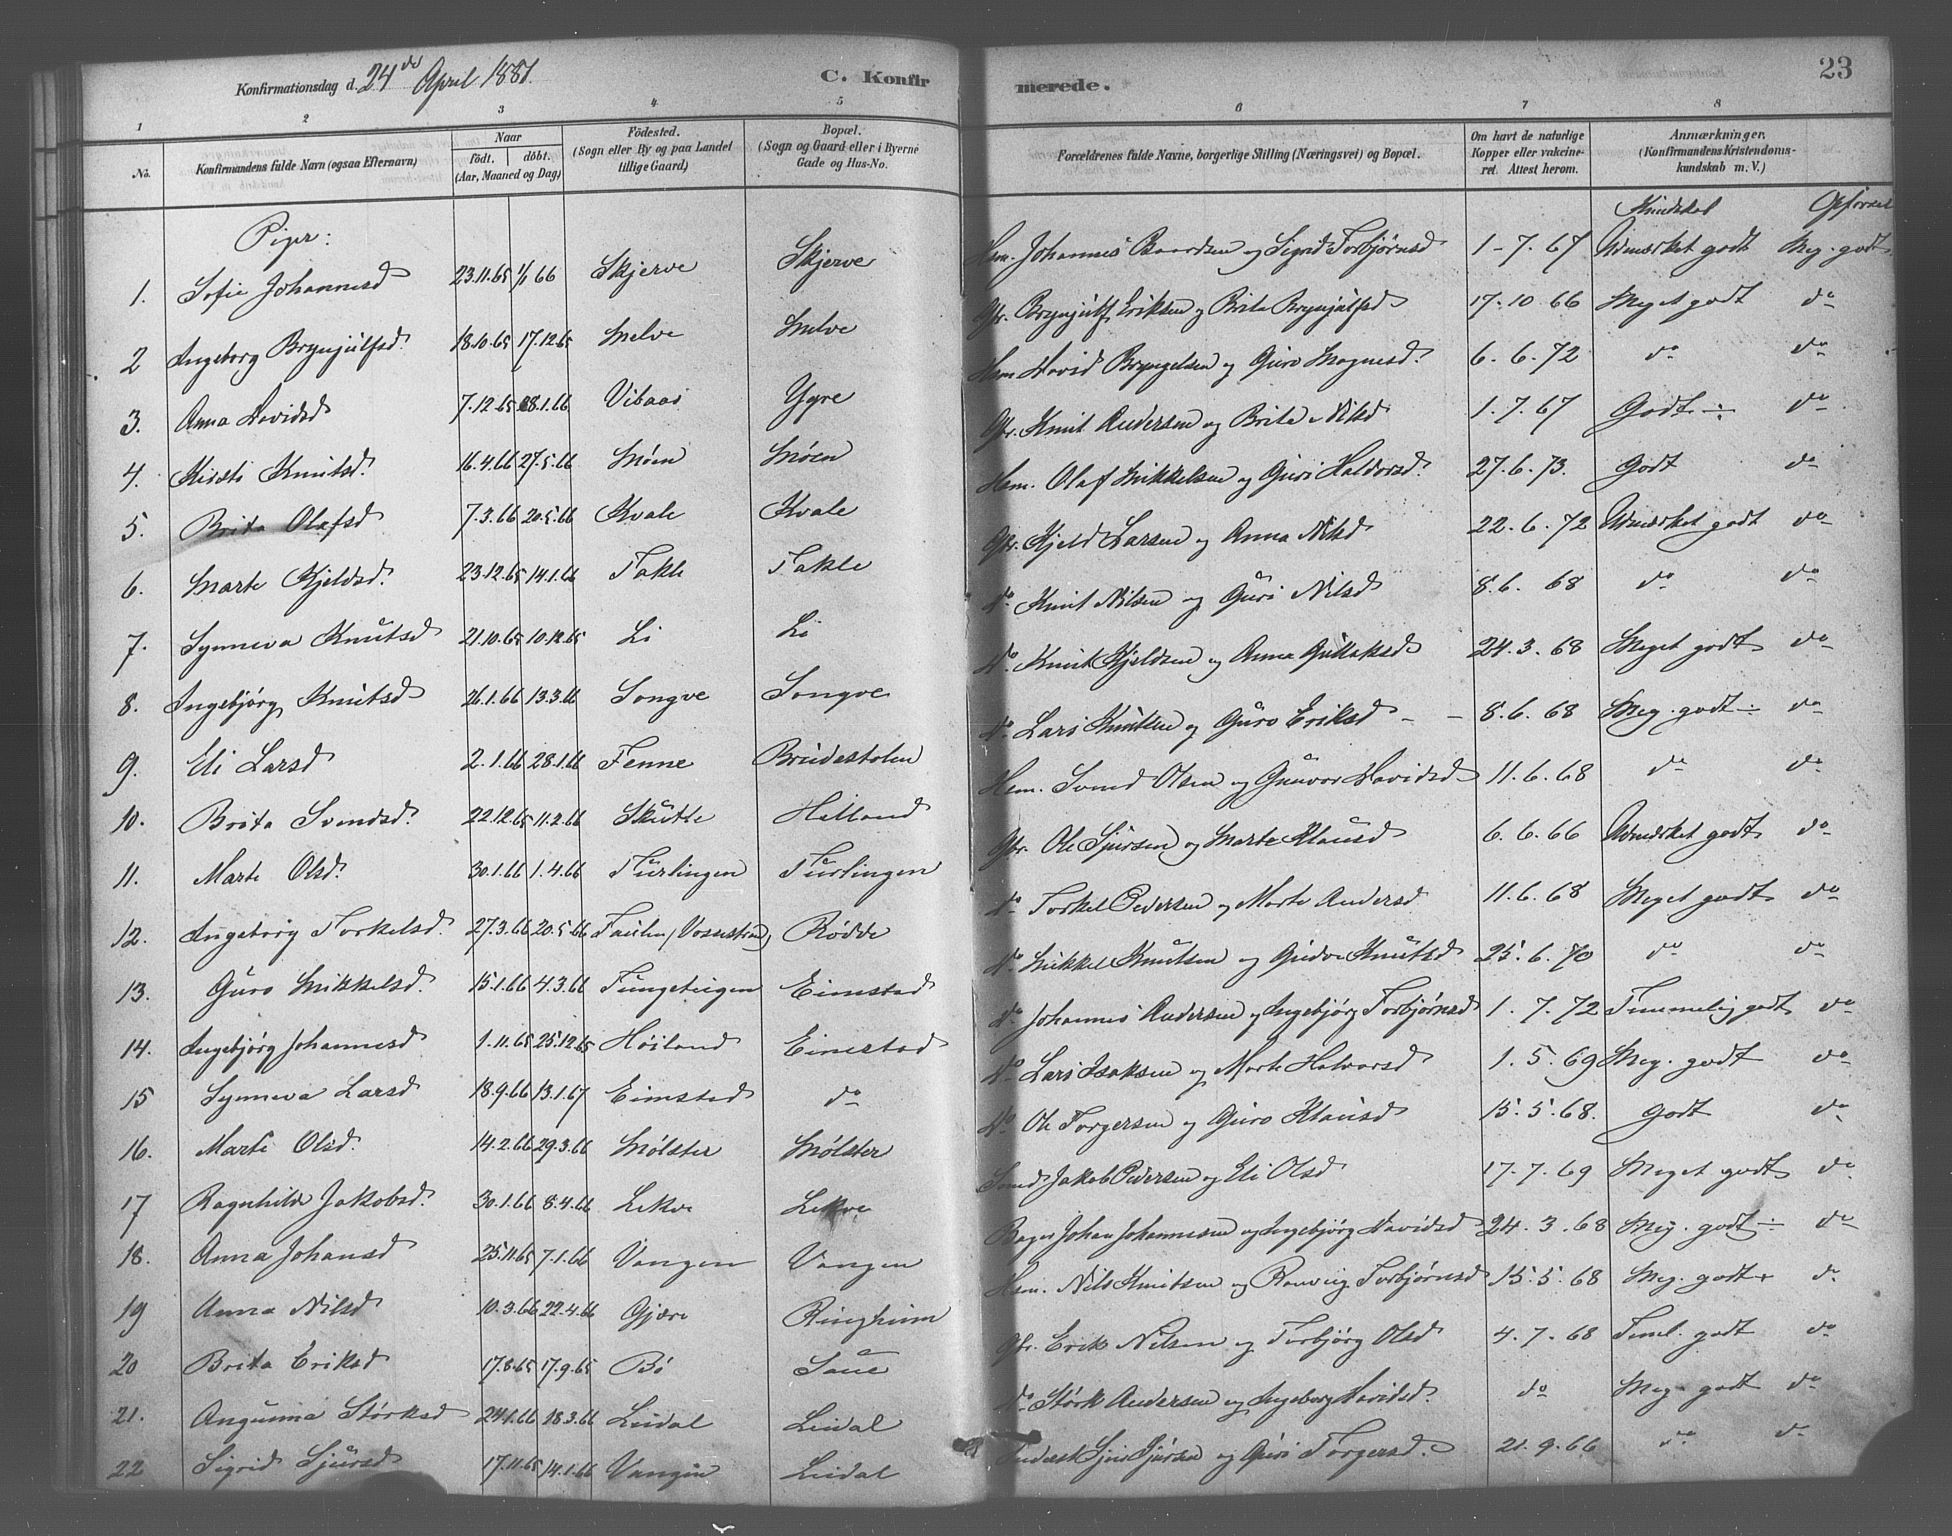 Konfirmationsdag d. 24de April 1881. C. Konfirmerede. 23
1 2 3 4 5 6 7 8
No. Konfirmandens fulde Navn (ogsaa Efternavn) Naar født. døbt. (Aar, Maaned og Dag) Fødested. (Sogn eller By og paa Landet tillige Gaard) Bopæl. (Sogn og Gaard eller i Byerne Gade og Hus-No. Forældrenes fulde Navne, borgerlige Stilling (Næringsvei) og Bopæl. Om havt de naturlige Kopper eller vakcineret. Attest herom. Anmærkninger. (Konfirmandens Kristendomskundskab m. V.)
Piger: Kundskab Opførsel
1. Sofie Johannesd 23.11.65 1/1 66 Skjerve Skjerve Hsm. Johannes Baardsen og Sigrid Torbjørnsd 1-7.67 Udmærket godt Meg. godt
2 Ingeborg Brynjulfsd. 18.10.65 17.12.65 Melve Melve Gbr. Brynjulf Eriksen og Brita Brynjulfsd 17.10.66 Meget godt do
3. Anna Davidsd 7.12.65 28.1.66 Vibaas Ygre Hsm David Bryngelsen og Guro Magnesd. 6.6.72 do do
4. Kirsti Knutsd. 16.4.66 27.5.66 Møen Møen Gbr. Knut Andersen og Brita Nilsd 1.7.67 Godt ÷ do
5. Brita Olafsd 7.3.66 20.5.66 Kvale Kvale Hsm. Olaf Mikkelsen og Guri Haldorsd. 27.6.73. Godt do
6. Marte Kjeldsd. 23.12.65 14.1.66 Takle Takle Gbr. Kjeld Larsen og Anna Nilsd 22.6.72 Udmærket godt do
7. Synneva Knutsd 21.10.65 10.12.65 Li Li do Knut Nilsen og Guri Nilsd 8.6.68 do do
8. Ingebjørg Knutsd 26.1.66 13.3.66 Songve Songve do Knut Kjeldsen og Anna Gullaksd 24.3.68 Meget godt do
9. Eli Larsd 2.1.66 28.1.66 Fenne Brudestolen do Lars Knutsen og Guro Eriksd - - 8.6.68 Meg. godt ÷ do
10. Brita Svendsd. 22.12.65 11.2.66 Skutle Helland Hsm. Svend Olsen og Gunvor Davidsd 11.6.68 do do
11. Marte Olsd. 30.1.66 1.4.66 Turlingen Turlingen Gbr. Ole Sjursen og Marte Klausd 6.6.66 Udmærket godt do
12. Ingeborg Torkelsd. 27.3.66 20.5.66 (Vossestrand) Rødde do Torkel Pedersen og Marte Andersd 11.6.68 Meget godt do
13. Guro Mikkelsd. 15.1.66 4.3.66 Tungeteigen Eimstad do Mikkel Knutsen og Knutsd 25.6.70 do do
14. Ingebjørg Johannesd 1.11.65 25.12.65 Høiland Eimstad do Johannes Andersen og Ingebjørg Torbjørnsd 1.7.72 Temmelig godt do
15 Synneva Larsd 18.9.66 13.1.67 Eimstad do do Lars Isaksen og Marte Halvorsd 1.5.69 Meg. godt do
16. Marte Olsd. 14.2.66 29.3.66 Mølster Mølster do Ole Torgersen og Guro Klausd 15.5.68. Godt do
17 Ragnhilde Jakobsd. 30.1.66 8.4.66 Lekve Lekve Smed Jakob Pedersen og Eli Olsd 17.7.69 Meget godt do
18. Anna Johansd 25.11.65 7.1.66 Vangen Vangen Bager Johan Johannesen og Ingebjørg Davidsd 24.3.68 Meg. godt ÷ do
19 Anna Nilsd 10.3.66 22.4.66 Gjære Ringheim Hsm. Nils Knutsen og Torbjørnsd 15.5.68 Meg. godt + do
20 Brita Eriksd 17.8.65 17.9.65 Bø Saue Gbr. Erik Nilsen og Torbjørg Olsd 4.7.68 Teml. godt do
21. Angunna Størksd 24.1.66 18.3.66 Lindal Lindal do Størk Andersen og Ingeborg Davidsd. do Meg. godt do
22 Sigrid Sjursd 17.11.65 14.1.66 Vangen Lindal Sjur Sjursen og Guri Torgersd. 21.9.66 do do